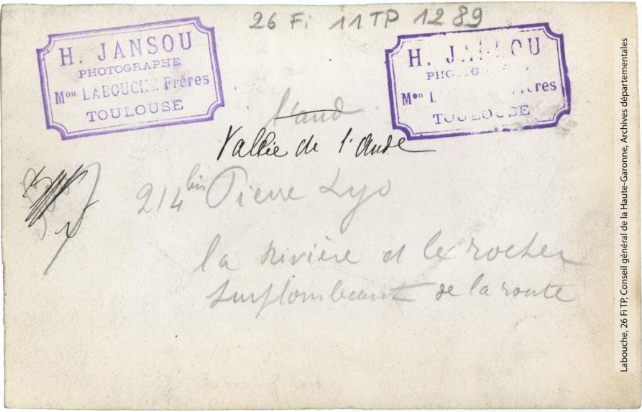 26 Fi 11 TP 1289
H. JANSOU
PHOTOGRAPHE
Mon LABOUCHE Frères
TOULOUSE
H. JANSOU
PHOTOGRAPHE
Mon L ères
TOULOUSE
Vallée de l'Aude
214 bis Pierre Lys
la rivière et le rocher
surplombant de la route
Labouche, 26 Fi TP, Conseil général de la Haute-Garonne, Archives départementales